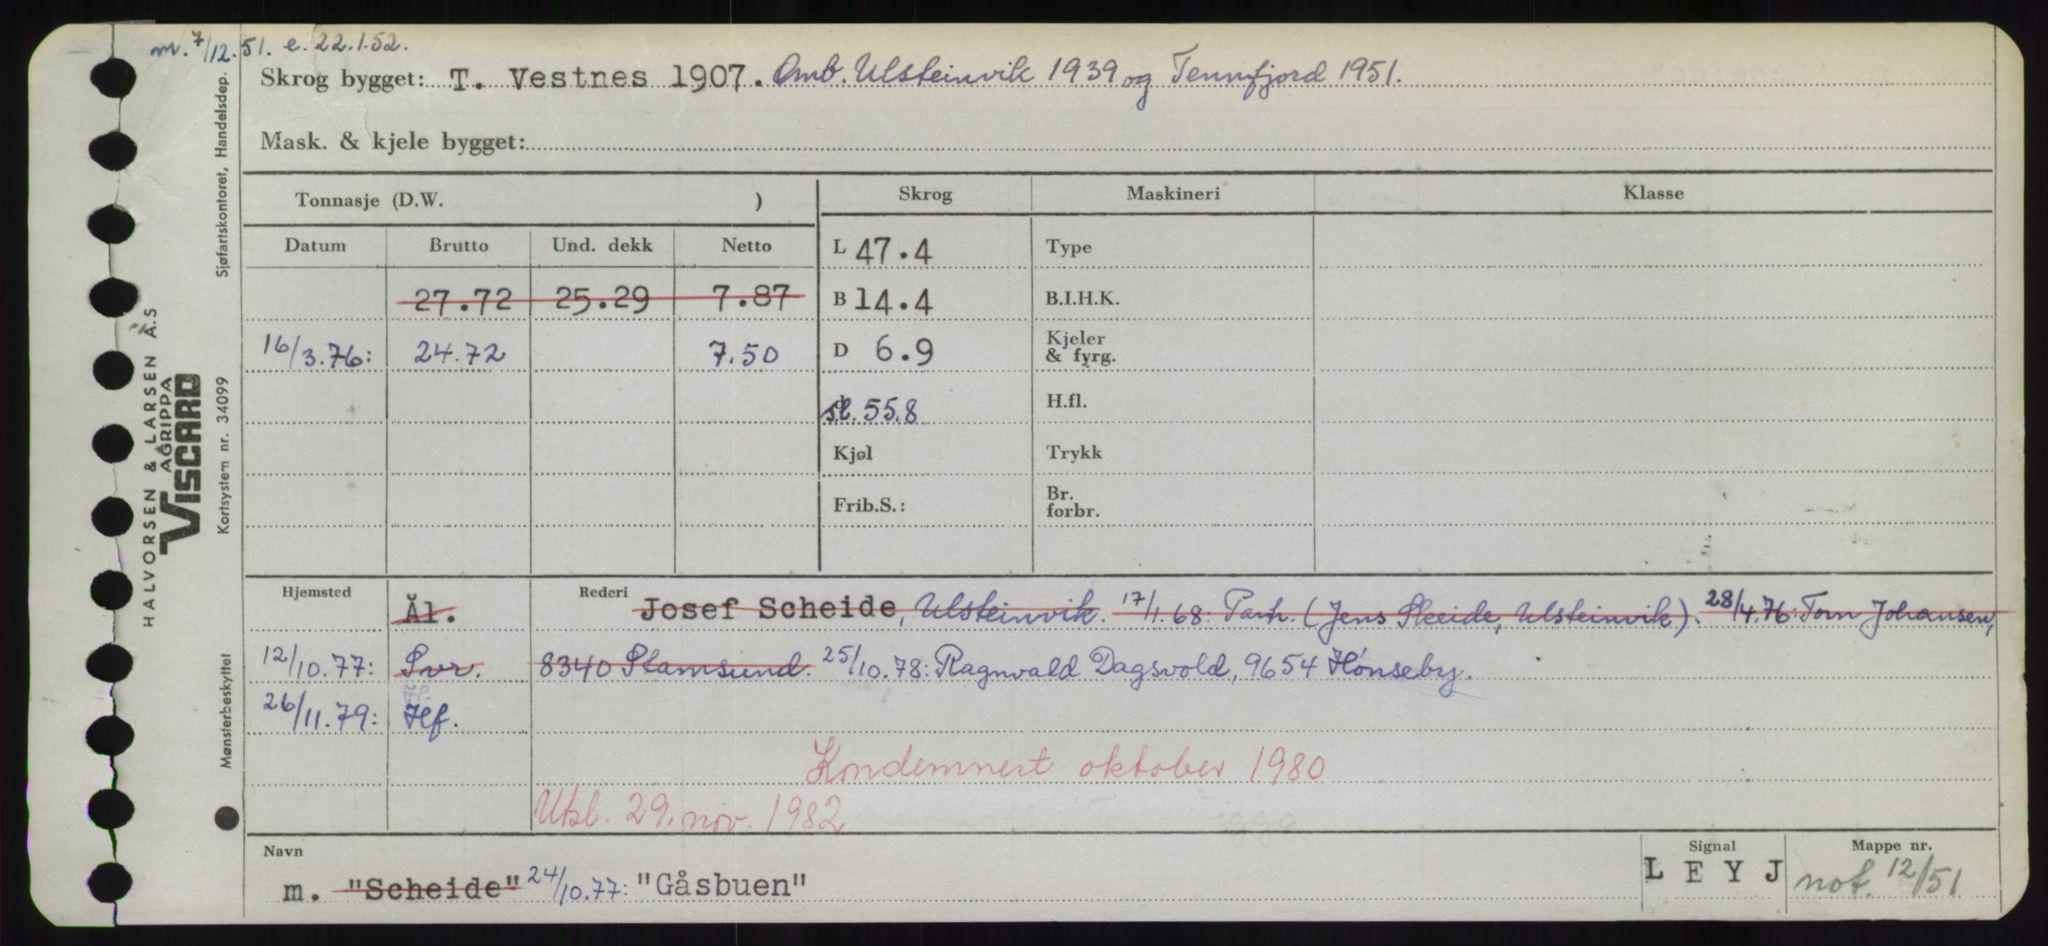 m. 7/12.51. e. 22.1.52.
Skrog bygget: T. Vestnes 1907. Omb. Ulsteinvik 1939 og Tennfjord 1951.
Mask. & kjele bygget:
Tonnasje (D.W. )
Skrog
Maskineri
Klasse
Datum Brutto Und. dekk Netto
L 47.4
Type
27.72 25.29 7.87
B 14.4
B.I.H.K.
16/3.76: 24.72 7.50
D 6.9
Kjeler
& fyrg.
d
sl. 55.8
H.fl.
Kjøl
Trykk
Frib.S.:
Br.
forbr.
Hjemsted
Rederi
Ål. Josef Scheide, Ulsteinvik. 17/1.68: Partr. (Jens Skeide, Ulsteinvik). 28/4.76: Tom Johansen,
12/10.77: Svr. 8340 Stamsund. 25/10.78: Ragnvald Dagsvold, 9654 Hønseby.
26/11.79: Hf.
Kondemnert oktober 1980
Utsl. 29. nov. 1982
Navn
m. "Scheide" 24/10.77: "Gåsbuen"
Signal
L E Y J
Mappe nr.
not. 12/51
Sjøfartskontoret, Handelsdep.
Kortsystem nr. 34099
Mønsterbeskyttet
HALVORSEN & LARSEN A.S
AGRIPPA
VISCARD